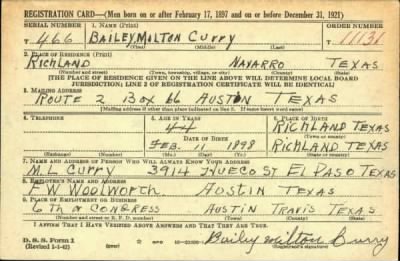 REGISTRATION CARD—(Men born on or after February 17, 1897 and on or before December 31, 1921)
SERIAL NUMBER 1. NAME (Print) ORDER NUMBER
T 466 BAILEY MILTON CURRY 11131
(First) (Middle) (Last)
2. PLACE OF RESIDENCE (Print)
RICHLAND NAVARRO TEXAS
(Number and street) (Town, township, village, or city) (County) (State)
[THE PLACE OF RESIDENCE GIVEN ON THE LINE ABOVE WILL DETERMINE LOCAL BOARD
JURISDICTION; LINE 2 OF REGISTRATION CERTIFICATE WILL BE IDENTICAL]
3. MAILING ADDRESS
ROUTE 2 BOX 66 AUSTON TEXAS
[Mailing address if other than place indicated on line 2. If same insert word same]
4. TELEPHONE 5. AGE IN YEARS 6. PLACE OF BIRTH
44 RICHLAND TEXAS
DATE OF BIRTH (Town or county)
FEB. 11 1898 RICHLAND TEXAS
(Exchange) (Number) (Mo.) (Day) (Yr.) (State or country)
7. NAME AND ADDRESS OF PERSON WHO WILL ALWAYS KNOW YOUR ADDRESS
M L CURRY 3914 HUECO ST EL PASO TEXAS
8. EMPLOYER'S NAME AND ADDRESS
F W WOOLWORTH AUSTIN TEXAS
9. PLACE OF EMPLOYMENT OR BUSINESS
6th & CONGRESS AUSTIN TRAVIS TEXAS
(Number and street or R. F. D. number) (Town) (County) (State)
I AFFIRM THAT I HAVE VERIFIED ABOVE ANSWERS AND THAT THEY ARE TRUE.
D. S. S. Form 1
(Revised 1-1-42) (over) Bailey Milton Curry